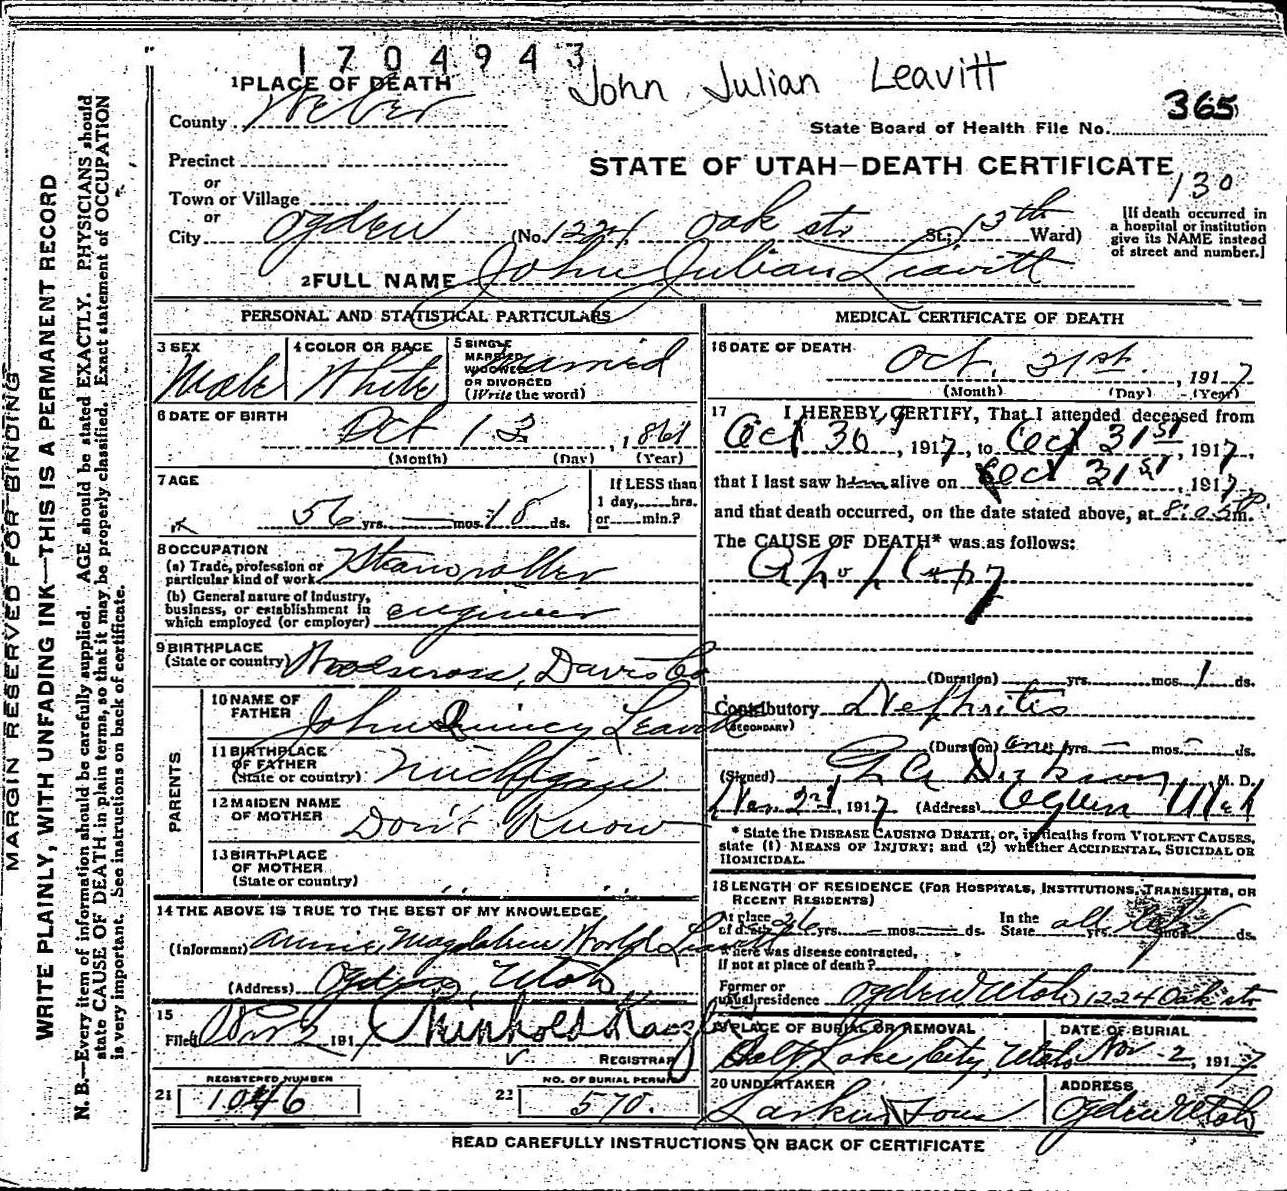 1704943
John Julian Leavitt
365
State Board of Health File No.
STATE OF UTAH—DEATH CERTIFICATE
130
1 PLACE OF DEATH
County Weber
Precinct
or
Town or Village
or
City Ogden (No. 1224 Oak str St.; 13th Ward)
[If death occurred in
a hospital or institution
give its NAME instead
of street and number.]
2 FULL NAME John Julian Leavitt
PERSONAL AND STATISTICAL PARTICULARS
3 SEX
Male
4 COLOR OR RACE
White
5 SINGLE
MARRIED
WIDOWED
OR DIVORCED
(Write the word)
Married
6 DATE OF BIRTH
Oct 13, 1861
(Month) (Day) (Year)
7 AGE
56 yrs. — mos. 18 ds.
If LESS than
1 day, hrs.
or min.?
8 OCCUPATION
(a) Trade, profession or
particular kind of work Steamroller
(b) General nature of Industry,
business, or establishment in
which employed (or employer) engineer
9 BIRTHPLACE
(State or country) Woodscross, Davis Co
PARENTS
10 NAME OF
FATHER John Quincy Leavitt
11 BIRTHPLACE
OF FATHER
(State or country) Michigan
12 MAIDEN NAME
OF MOTHER Don't Know
13 BIRTHPLACE
OF MOTHER
(State or country)
14 THE ABOVE IS TRUE TO THE BEST OF MY KNOWLEDGE
(Informant) Annie Leavitt
(Address) Ogden, Utah
15
Filed Nov 2, 191
REGISTRAR
21 REGISTERED NUMBER
1046
22 NO. OF BURIAL PERMIT
570.
MEDICAL CERTIFICATE OF DEATH
16 DATE OF DEATH
Oct. 31st, 1917
(Month) (Day) (Year)
17 I HEREBY CERTIFY, That I attended deceased from
Oct 30, 1917, to Oct 31st, 1917,
that I last saw him alive on Oct 31st, 1917,
and that death occurred, on the date stated above, at 8:05P m.
The CAUSE OF DEATH* was as follows:
Apoplexy
(Duration) yrs. mos. 1 ds.
Contributory Nephritis
(SECONDARY)
(Duration) one yrs. — mos. — ds.
(Signed) M. D.
Nov. 2nd, 1917 (Address) Ogden Utah
* State the DISEASE CAUSING DEATH, or, in deaths from VIOLENT CAUSES,
state (1) MEANS OF INJURY; and (2) whether ACCIDENTAL, SUICIDAL OR
HOMICIDAL.
18 LENGTH OF RESIDENCE (FOR HOSPITALS, INSTITUTIONS, TRANSIENTS, OR
RECENT RESIDENTS)
At place
of death 26 yrs. — mos. — ds. In the
State all life yrs. mos. ds.
Where was disease contracted,
If not at place of death?
Former or
usual residence Ogden Utah 1224 Oak str
19 PLACE OF BURIAL OR REMOVAL
Salt Lake City, Utah
DATE OF BURIAL
Nov - 2, 1917
20 UNDERTAKER
Larkin & Sons
ADDRESS
Ogden Utah
READ CAREFULLY INSTRUCTIONS ON BACK OF CERTIFICATE
MARGIN RESERVED FOR BINDING
WRITE PLAINLY, WITH UNFADING INK—THIS IS A PERMANENT RECORD
N. B.—Every item of information should be carefully supplied. AGE should be stated EXACTLY. PHYSICIANS should
state CAUSE OF DEATH in plain terms, so that it may be properly classified. Exact statement of OCCUPATION
is very important. See instructions on back of certificate.